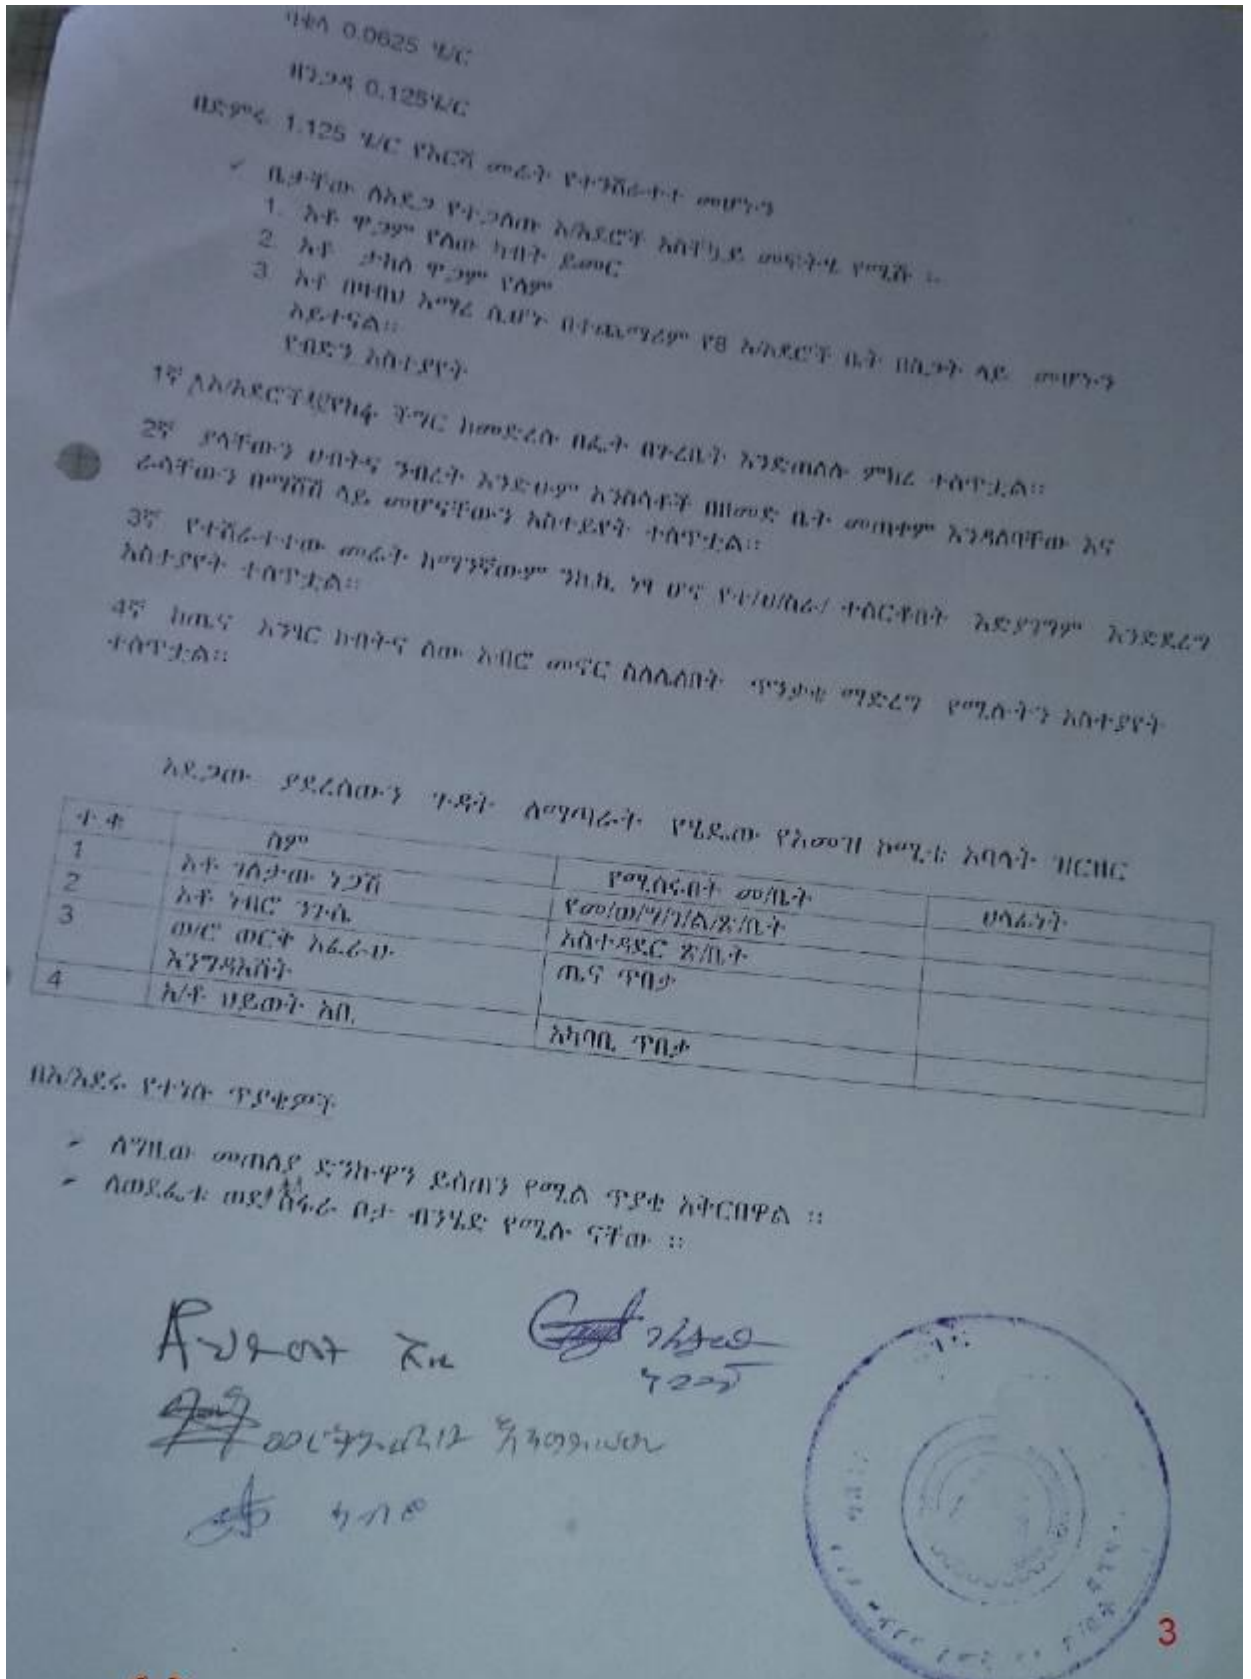 ባቄላ 0.0625 ሄ/ር
ዘንጋዳ 0.125ሄ/ር
በድምሩ 1.125 ሄ/ር የእርሻ መሬት የተንሸራተተ መሆኑን
ቤታቸው ለአደጋ የተጋለጠ አ/አደሮች አስቸኳይ መፍትሄ የሚሹ ።
1. አቶ ዋጋም የለው ካብት ይመር
2. አቶ ታከለ ዋጋም የለም
3 አቶ በዛብህ አማረ ሲሆኑ በተጨማሪም የ8 አ/አደሮች ቤት በስጋት ላይ መሆኑን
አይተናል።
የብድን አስተያየት
1ኛ ለአ/አደሮች የከፋ ችግር ከመድረሱ በፊት በጉረቤት እንድጠለሉ ምክረ ተሰጥቷል።
2ኛ ያላቸውን ሀብትና ንብረት እንድሁም እንስሳቶች በዘመድ ቤት መጠቀም እንዳለባቸው እና
ራሳቸውን በማሸሽ ላይ መሆናቸውን አስተይየት ተሰጥቷል።
3ኛ የተሸራተተው መሬት ከማንኛውም ንክኪ ነፃ ሆኖ የተ/ሀ/ስራ/ ተሰርቶበት እድያገግም እንድደረግ
አስታያየት ተሰጥቷል።
4ኛ ከጤና አንፃር ከብትና ሰው አብሮ መኖር ስለሌለበት ጥንቃቄ ማድረግ የሚሉትን አስተያየት
ተሰጥቷል።
አደጋው ያደረሰውን ጉዳት ለማጣራት የሄዴው የእመዝ ኮሚቴ አባላት ዝርዝር
ተ ቁ ስም የሚሰሩበት መ/ቤት ሀላፊነት
1 አቶ ገለታው ነጋሽ የመ/ወ/ሃ/ገ/ል/ጽ/ቤት
2 አቶ ነብሮ ንጉሴ አስተዳደር ጽ/ቤት
3 ወ/ሮ ወርቅ አፈራሁ ጤና ጥበቃ
እንግዳእሸት
4 አ/ቶ ህይወት አበ አካባቢ ጥበቃ
በአ/አደሩ የተነሱ ጥያቄምች
ለግዚው መጠለያ ድንኩዋን ይሰጠን የሚል ጥያቄ አቅርበዋል ።
ለወደፊቱ ወደ ሰፋራ ቦታ ብንሄድ የሚሉ ናቸው ።
3